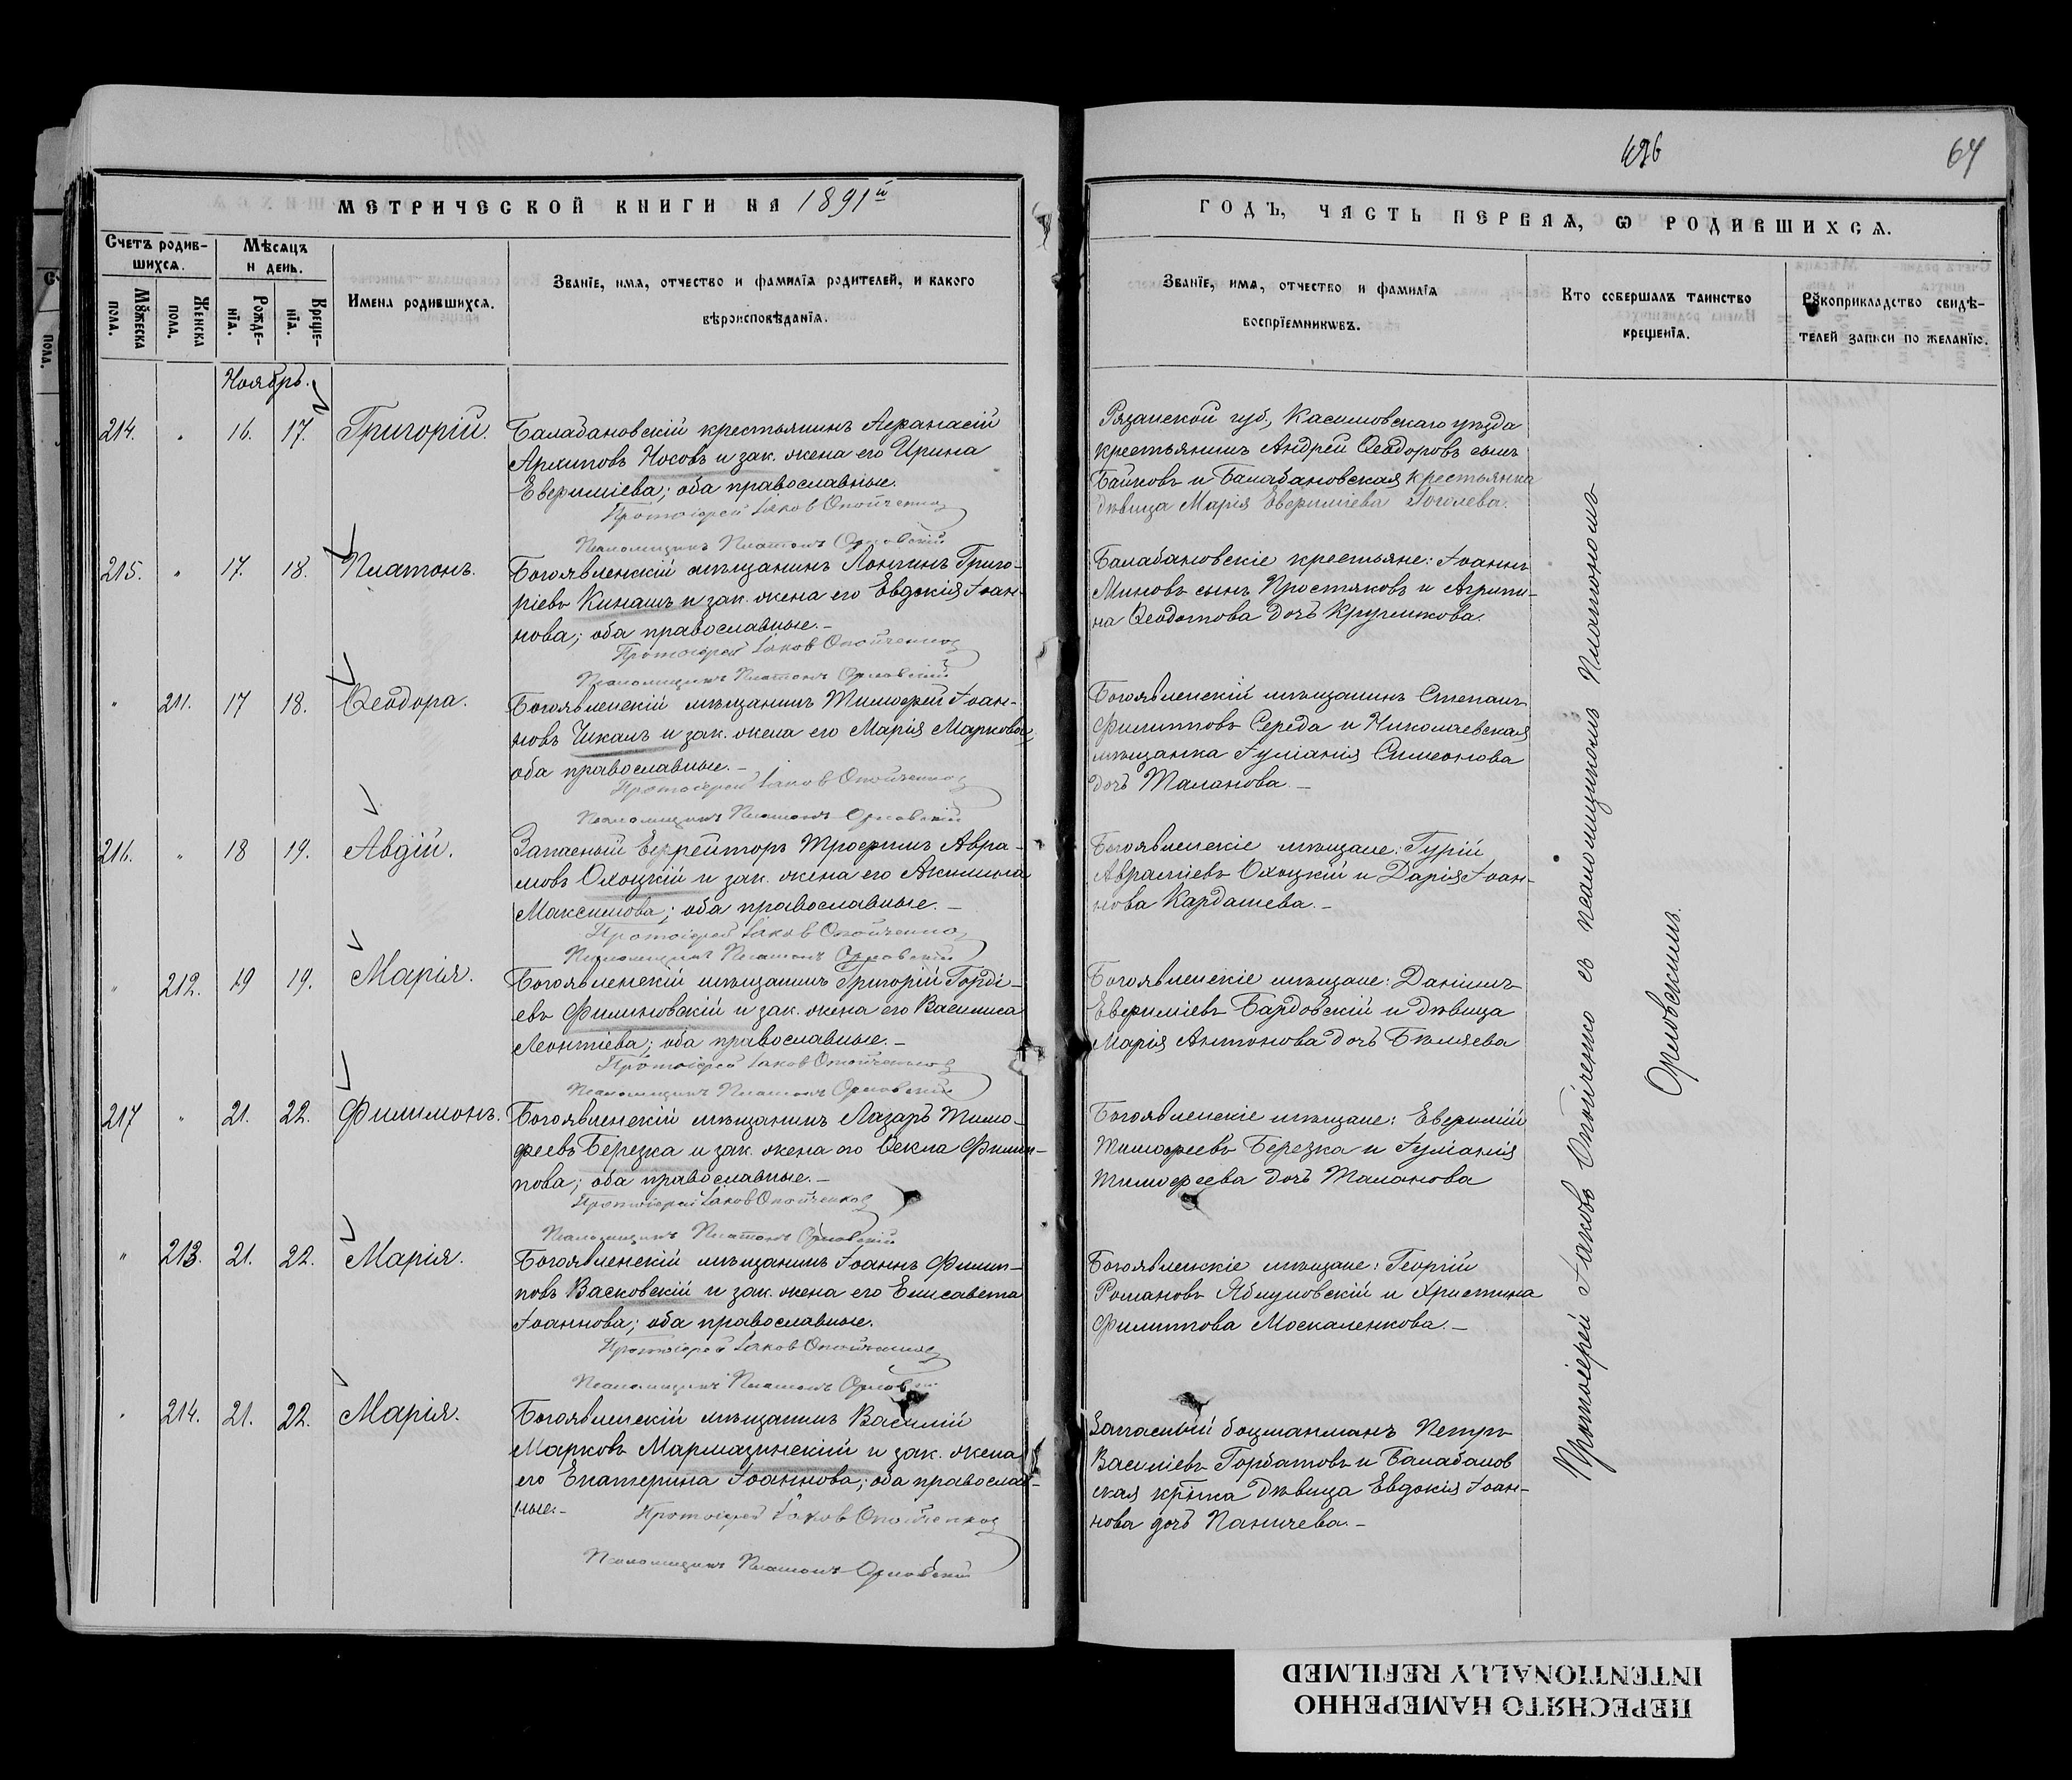 МЕТРИЧЕСКОЙ КНИГИ НА 1891й
Счетъ родив-
шихся.
Мѣсяцъ
и день.
Мужеска
пола.
Женска
пола.
Рожде-
нія.
Креще-
нія.
Имена родившихся.
Званіе, имя, отчество и фамилія родителей, и какого
вѣроисповѣданія.
Ноябрь.
214. " 16. 17. Григорій.
Балабановскій крестьянинъ Аѳанасій
Архиповъ Носовъ и зак. жена его Ирина
Евфиміева; оба православные.
Протоіерей Іаковъ Опойченко
Псаломщикъ Платонъ Орловскій
215. " 17. 18. Платонъ.
Богоявленскій мѣщанинъ Лонгинъ Григо-
ріевъ Кинашъ и зак. жена его Евдокія Іоан-
нова; оба православные.-
Протоіерей Іаковъ Опойченко
Псаломщикъ Платонъ Орловскій
" 211. 17 18. Ѳеодора.
Богоявленскій мѣщанинъ Тимофей Іоан-
новъ Чкалъ и зак. жена его Марія Маркова;
оба православные.-
Протоіерей Іаковъ Опойченко
Псаломщикъ Платонъ Орловскій
216. " 18 19. Авдій.
Запасный Ефрейторъ Трофимъ Авра-
мовъ Олоцкій и зак. жена его Акилина
Максимова; оба православные.-
Протоіерей Іаковъ Опойченко
Псаломщикъ Платонъ Орловскій
" 212. 19 19. Марія.
Богоявленскій мѣщанинъ Григорій Горді-
евъ Филиновскій и зак. жена его Василиса
Леонтіева; оба православные.-
Протоіерей Іаковъ Опойченко
Псаломщикъ Платонъ Орловскій
217 " 21. 22. Филимонъ.
Богоявленскій мѣщанинъ Лазарь Тимо-
феевъ Березка и зак. жена его Ѳекла Филип-
пова; оба православные.-
Протоіерей Іаковъ Опойченко
Псаломщикъ Платонъ Орловскій
" 213. 21. 22. Марія.
Богоявленскій мѣщанинъ Іоаннъ Филип-
повъ Васковскій и зак. жена его Елисавета
Іоаннова; оба православные.
Протоіерей Іаковъ Опойченко
Псаломщикъ Платонъ Орловскій
" 214. 21. 22. Марія.
Богоявленскій мѣщанинъ Василій
Марковъ Мармазинскій и зак. жена
его Екатерина Іоаннова; оба православ-
ные.-
Протоіерей Іаковъ Опойченко
Псаломщикъ Платонъ Орловскій
64
ГОДЪ, ЧАСТЬ ПЕРВАЯ, Ѡ РОДИВШИХСЯ.
Званіе, имя, отчество и фамилія
воспріемниковъ.
Кто совершалъ таинство
крещенія.
Рукоприкладство свидѣ-
телей записи по желанію.
Рязанской губ., Касимовскаго уѣзда
крестьянинъ Андрей Ѳеодоровъ сынъ
Байковъ и Балабановская крестьянка
дѣвица Марія Евфиміева Гоголева.
Балабановскіе крестьяне: Іоаннъ
Миновъ сынъ Простяковъ и Агрипи-
на Ѳеодотова дочь Кругликова.
Богоявленскій мѣщанинъ Степанъ
Филипповъ Середа и Николаевская
мѣщанка Іуліанія Симеонова
дочь Таланова.-
Богоявленскіе мѣщане: Гурій
Авраміевъ Олоцкій и Дарія Іоан-
нова Кардашева.-
Богоявленскіе мѣщане: Даніилъ
Евфиміевъ Бардовскій и дѣвица
Марія Антонова дочь Бѣляева
Богоявленскіе мѣщане: Евфимій
Тимофеевъ Березка и Іуліанія
Тимофеева дочь Таланова
Богоявленскіе мѣщане: Георгій
Романовъ Яблуновскій и Христина
Филиппова Москаленкова.-
Запасный боцманманъ Петръ
Василіевъ Горбатовъ и Балабанов
ская кр-нка дѣвица Евдокія Іоан-
нова дочь Паничева.-
Протоіерей Іаковъ Опойченко съ псаломщикомъ Платономъ
Орловскимъ.
ПЕРЕСНЯТО НАМЕРЕННО
INTENTIONALLY REFILMED